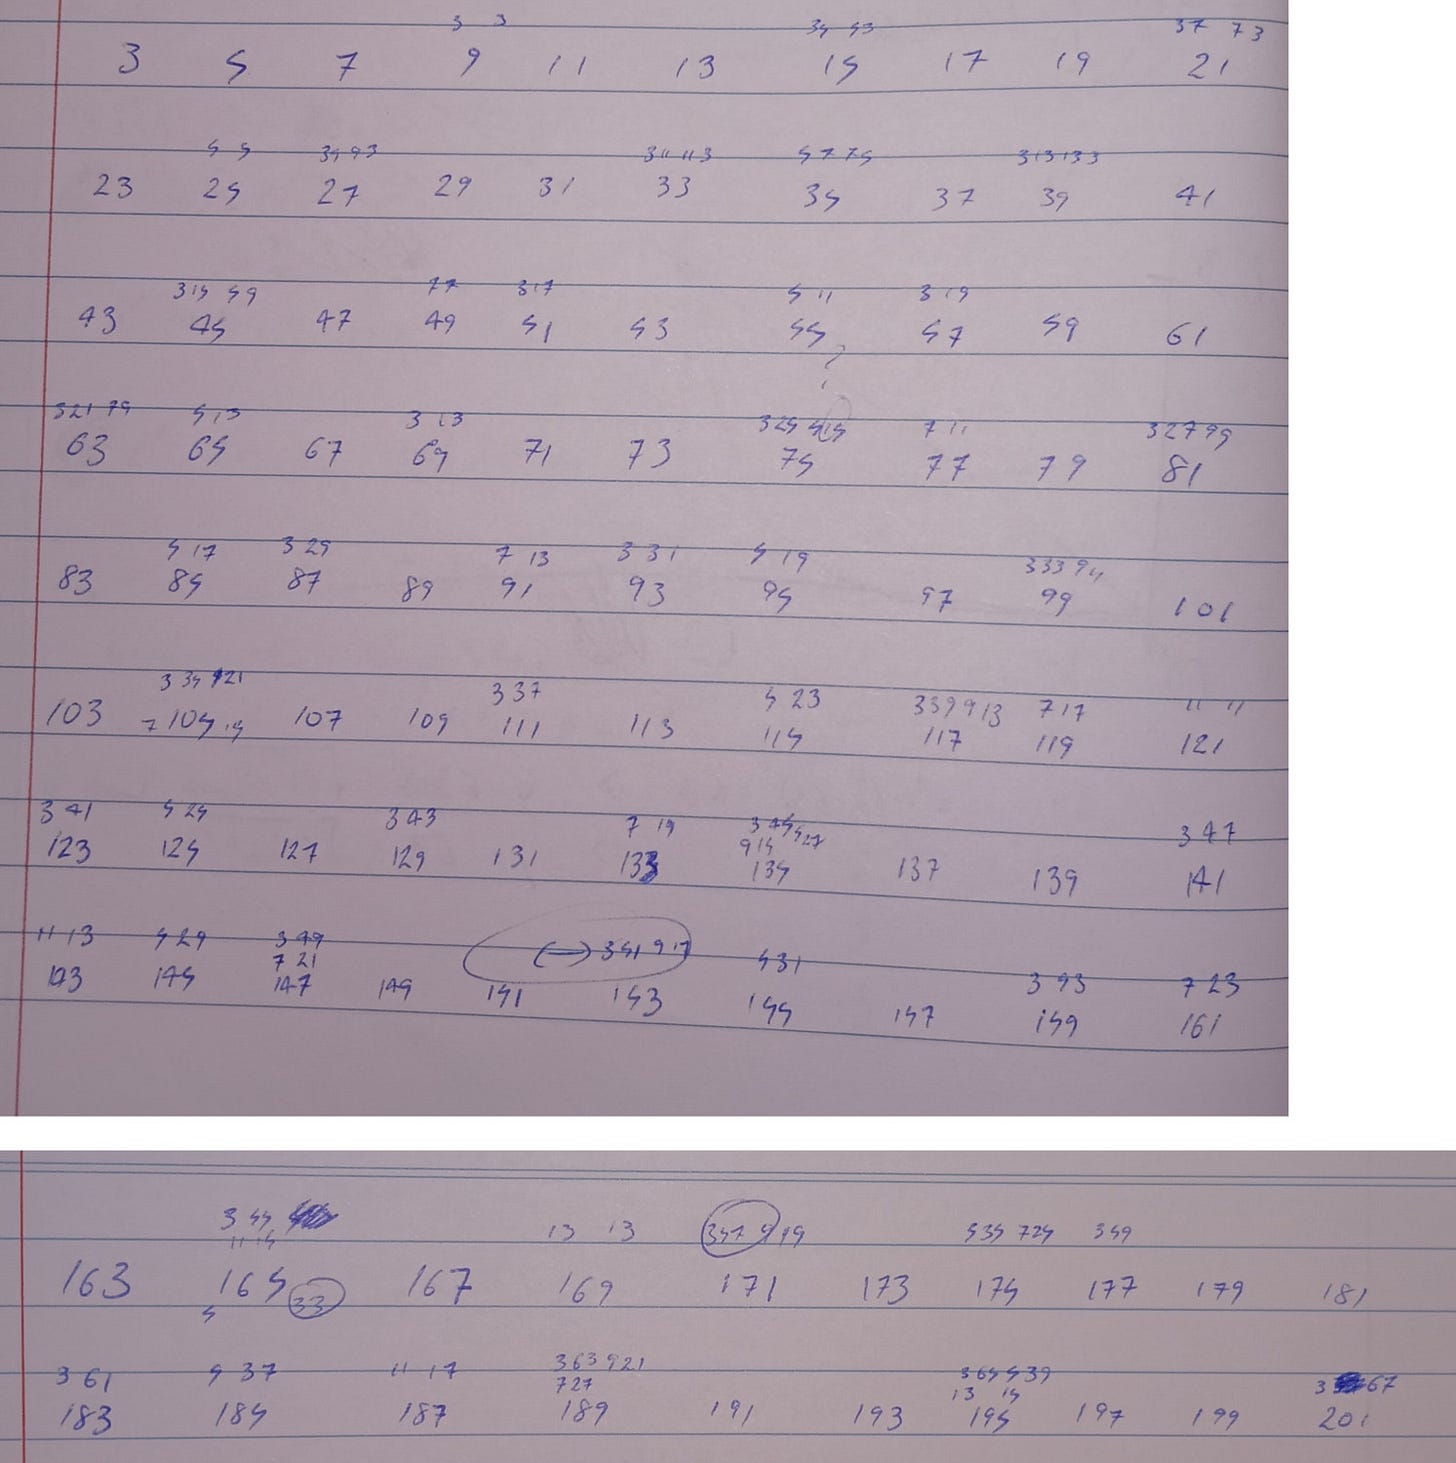 3 3 35 53 37 73
3 5 7 9 11 13 15 17 19 21
5 5 39 93 311 113 57 75 313 133
23 25 27 29 31 33 35 37 39 41
315 59 77 317 5 11 3 19
43 45 47 49 51 53 55 57 59 61
?
321 79 513 3 23 325 515 7 11 327 99
63 65 67 69 71 73 75 77 79 81
5 17 3 29 7 13 3 31 5 19 333 911
83 85 87 89 91 93 95 97 99 101
3 35 521 337 5 23 339 9 13 717 11 11
103 7 105 15 107 109 111 113 115 117 119 121
3 41 5 25 3 43 7 19 3 45 527 3 47
9 15
123 125 127 129 131 133 135 137 139 141
11 13 5 29 3 49 (—) 351 9 17 531 3 53 7 23
7 21
143 145 147 149 151 153 155 157 159 161
3 55 13 13 357 9 19 535 725 359
11 15
163 165 33 167 169 171 173 175 177 179 181
5
3 61 5 37 11 17 363 921 365 539 3 67
727 13 15
183 185 187 189 191 193 195 197 199 201